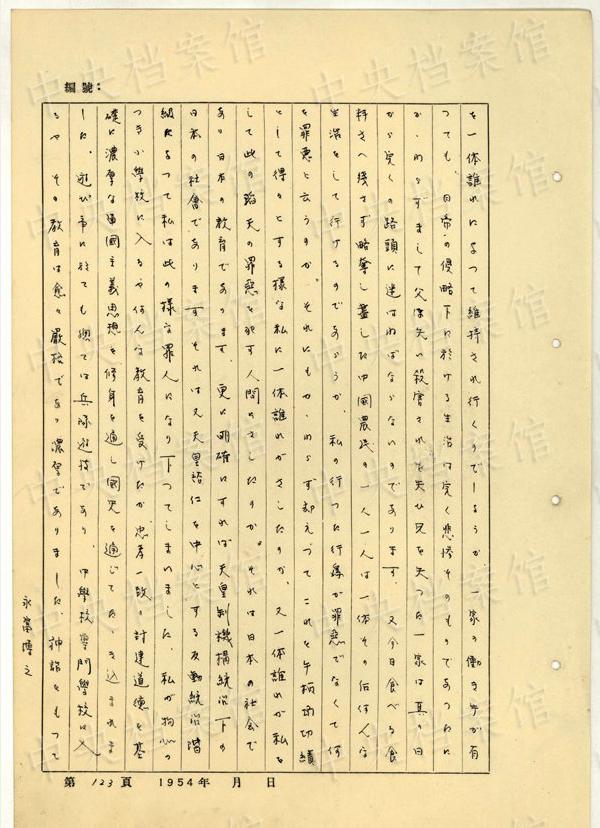 編號：
を一体誰れによつて維持され行くのでしようか、一家の働き手が有
つても、日帝の侵略下に於ける生活は実く悲惨そのものであつたに
かゝわらずまして父は失い殺害され を失ひ兄を失つた一家は真の日
から実くの路頭に迷はねばならないのであります。又今日食べる食
料さへ残さず略奪し盡した中國農民の一人一人は一体その后何んな
生活をして行けるのであろうか、私の行つた行為が罪悪でなくて何
を罪悪と云うのか、それにもかゝわらず却えつてこれを手柄 功績
として得々とする様な私に一体誰れがさしたのか、又一体誰れが私を
して此の滔天の罪悪を犯す人間 さしたのか。それは日本の社会で
あり日本の教育であります、更に明確にすれば天皇制機構統治下の
日本の社會であります それは又天皇裕仁を中心とする反動統治階
級によつて私は此の様な罪人になり下つてしまいました、私が物心の
つき小學校に入るや何んな教育を受けたか、忠孝一致の封建道徳を基
礎に濃厚な軍國主義思想を修身を通し國史を通じてたゝき込まれま
した、遊び事に於ても凡ては兵隊遊技であり、中學校専門學校に入
るや その教育は愈々嚴格であり濃厚でありました、神話をもつて
永富博之
第 123 頁 1954年 月 日
中央档案馆